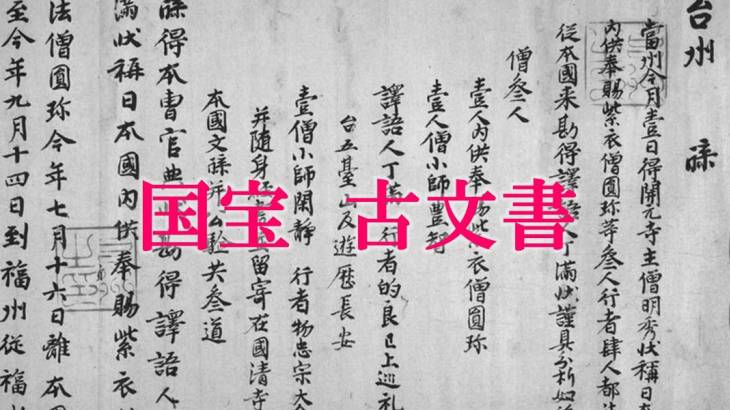 国宝 古文書
台州 牒
當州今月壹日得開元寺主僧明秀状稱日本
内供奉賜紫衣僧圓珎等叁人行者肆人都
従本國来勘得譯語人丁滿状謹具分析如
僧叁人
壹人内供奉賜紫衣僧圓珎
壹人僧小師豊智
譯語人丁滿 行者的良已上巡礼
台五臺山及遊歴長安
壹僧小師閑静 行者物忠宗大全
并随身 留寄在國清寺
本國文牒并公驗共叁道
牒得本曹官典 勘得譯語人
滿状稱日本國内供奉賜紫衣
法僧圓珎今年七月十六日離本國
至今年九月十四日到福州従福